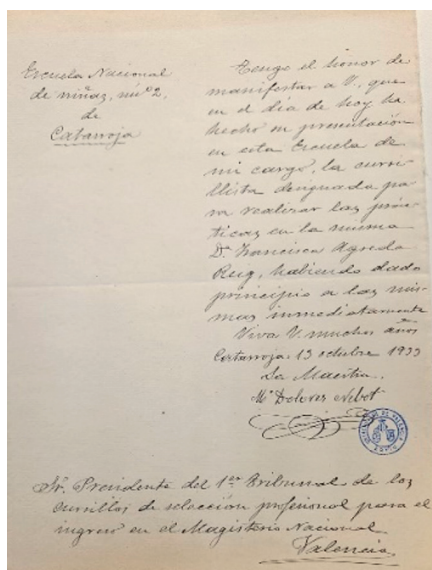 Escuela Nacional
de niñas, nº 2,
de
Catarroja
Tengo el honor de
manifestar a V., que
en el día de hoy ha
hecho su presentación
en esta Escuela de
mi cargo, la cursi-
llista designada pa-
ra realizar las prác-
ticas en la misma
Dª Francisca Agreda
Puig, habiendo dado
principio a las mis-
mas inmediatamente
Viva V. muchos años
Catarroja 13 octubre 1933
La Maestra,
Mª Dolores Nebot
Sr. Presidente del 1er Tribunal de los
cursillos de selección profesional para el
ingreso en el Magisterio Nacional
Valencia